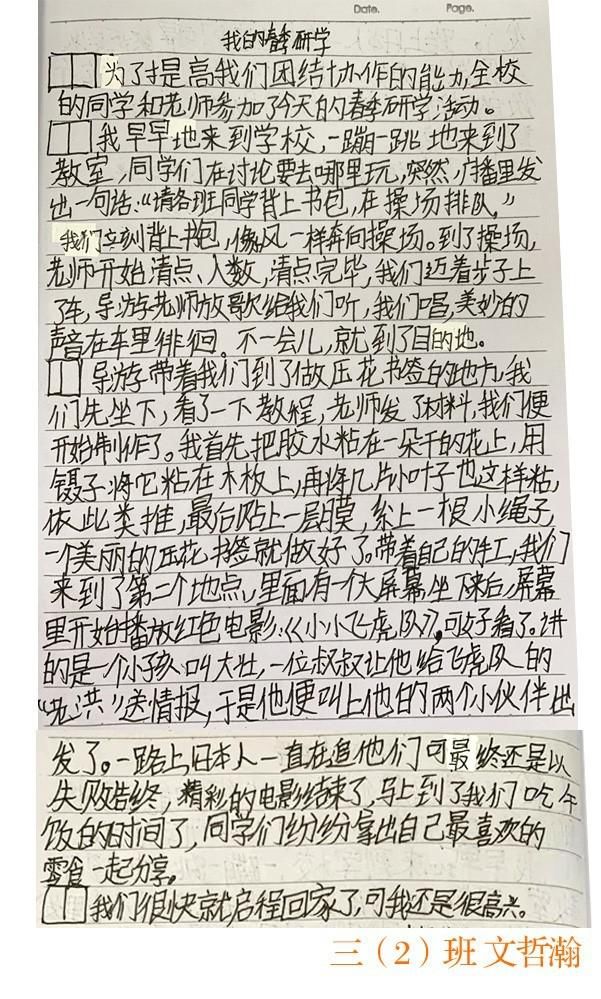 Date. Page.
我的春季研学
为了提高我们团结协作的能力,全校
的同学和老师参加了今天的春季研学活动。
我早早地来到学校,一蹦一跳地来到了
教室,同学们在讨论要去哪里玩,突然,广播里发
出一句话:“请各班同学背上书包,在操场排队。”
我们立刻背上书包,像风一样奔向操场。到了操场,
老师开始清点、人数,清点完毕,我们迈着步子上
了车,导游老师放歌给我们听,我们唱,美妙的
声音在车里徘徊。不一会儿,就到了目的地。
导游带着我们到了做压花书签的地方,我
们先坐下,看了一下教程,老师发了材料,我们便
开始制作了。我首先把胶水粘在一朵干的花上,用
镊子将它粘在木板上,再将几片小叶子也这样粘,
依此类推,最后贴上一层膜,系上一根小绳子,
一个美丽的压花书签就做好了。带着自己的手工,我们
来到了第二个地点,里面有一个大屏幕坐下来后,屏幕
里开始播放红色电影:《小小飞虎队》,可好看了。讲
的是一个小孩叫大壮,一位叔叔让他给飞虎队的
“老洪”送情报,于是他便叫上他的两个小伙伴出
发了。一路上日本人一直在追他们可最终还是以
失败告终,精彩的电影结束了,马上到了我们吃午
饭的时间了,同学们纷纷拿出自己最喜欢的
零食一起分享。
我们很快就启程回家了,可我还是很高兴。
三(2)班 文哲瀚